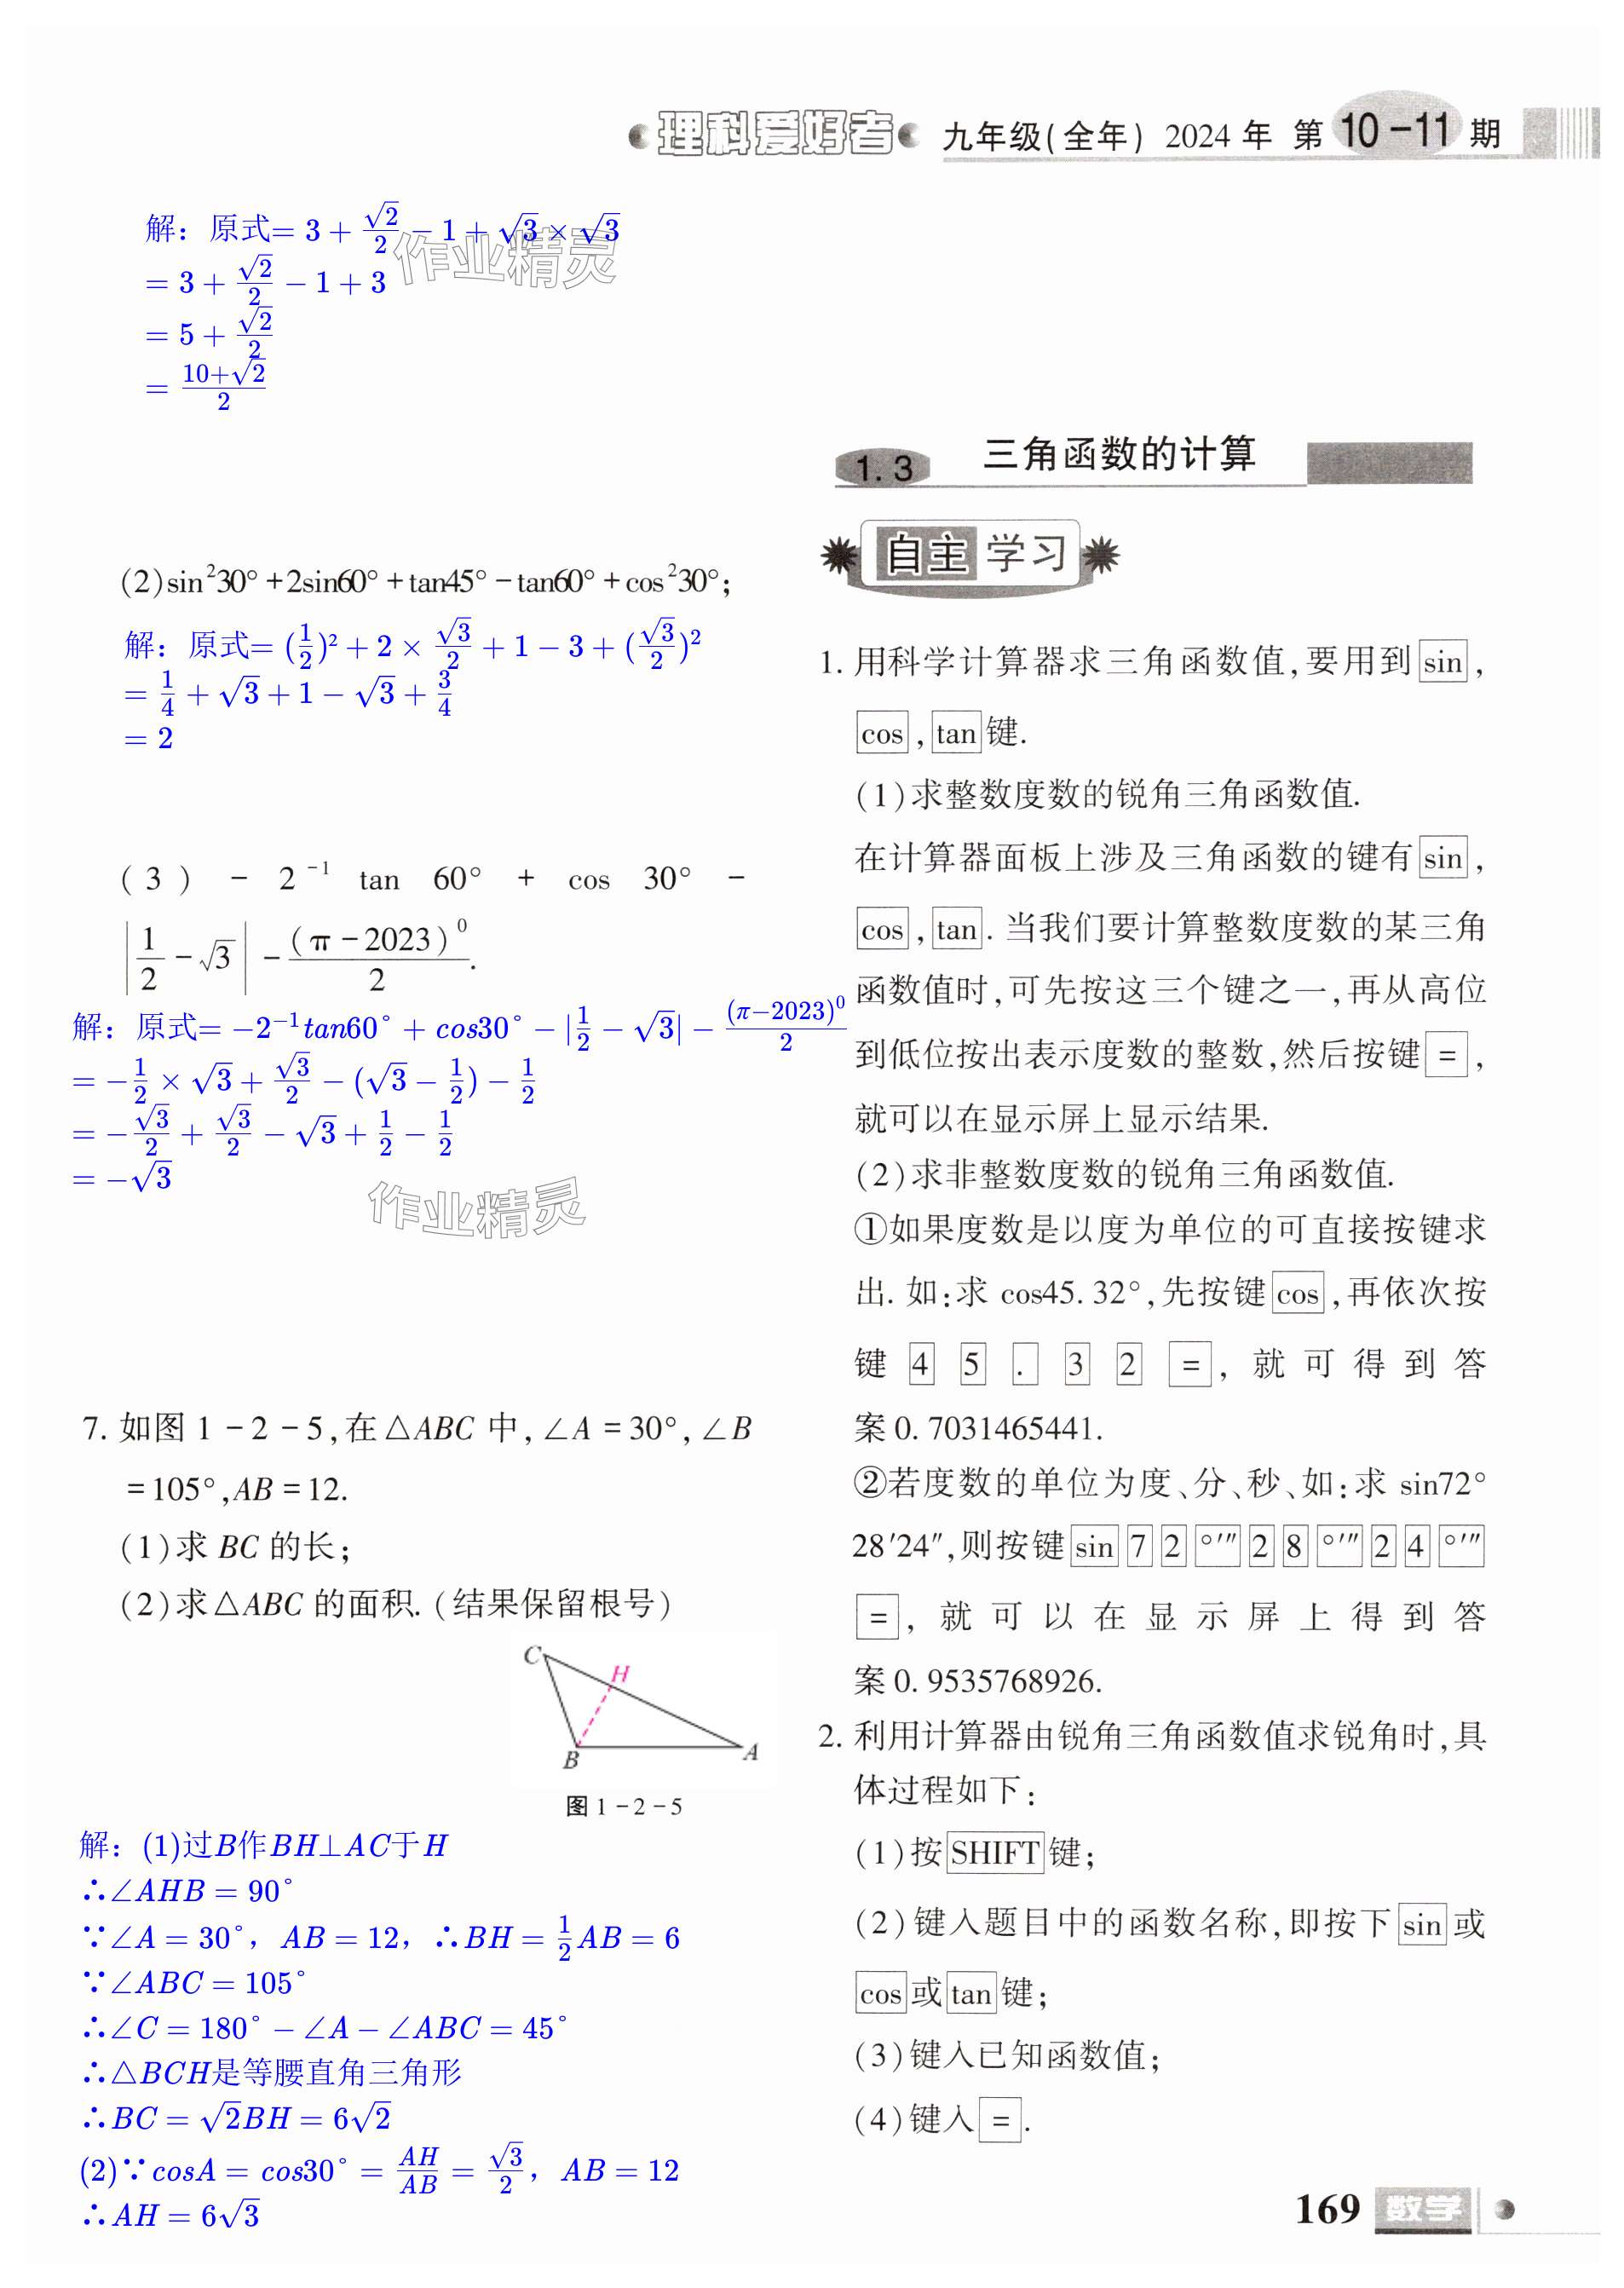 理科爱好者 九年级(全年) 2024年 第10-11期
解：原式= 3 + √2/2 − 1 + √3 × √3
= 3 + √2/2 − 1 + 3
= 5 + √2/2
= (10+√2)/2
作业精灵
(2)sin²30°+2sin60°+tan45°-tan60°+cos²30°;
解：原式= (1/2)² + 2 × √3/2 + 1 − 3 + (√3/2)²
= 1/4 + √3 + 1 − √3 + 3/4
= 2
(3) - 2⁻¹ tan 60° + cos 30° -
|1/2 - √3| - (π-2023)⁰/2.
解：原式= −2⁻¹tan60° + cos30° − |1/2 − √3| − (π−2023)⁰/2
= −1/2 × √3 + √3/2 − (√3 − 1/2) − 1/2
= −√3/2 + √3/2 − √3 + 1/2 − 1/2
= −√3
作业精灵
7. 如图 1-2-5,在△ABC 中,∠A=30°,∠B
=105°,AB=12.
(1)求 BC 的长;
(2)求△ABC 的面积.(结果保留根号)
C
H
B
A
图 1-2-5
解：(1)过B作BH⊥AC于H
∴∠AHB = 90°
∵∠A = 30°，AB = 12，∴BH = 1/2 AB = 6
∵∠ABC = 105°
∴∠C = 180° − ∠A − ∠ABC = 45°
∴△BCH是等腰直角三角形
∴BC = √2BH = 6√2
(2)∵cosA = cos30° = AH/AB = √3/2，AB = 12
∴AH = 6√3
1.3 三角函数的计算
自主学习
1. 用科学计算器求三角函数值,要用到 sin,
cos,tan 键.
(1)求整数度数的锐角三角函数值.
在计算器面板上涉及三角函数的键有 sin,
cos,tan. 当我们要计算整数度数的某三角
函数值时,可先按这三个键之一,再从高位
到低位按出表示度数的整数,然后按键 =,
就可以在显示屏上显示结果.
(2)求非整数度数的锐角三角函数值.
①如果度数是以度为单位的可直接按键求
出. 如:求 cos45.32°,先按键 cos,再依次按
键 4 5 . 3 2 =,就可得到答
案 0.7031465441.
②若度数的单位为度、分、秒、如:求 sin72°
28′24″,则按键 sin 7 2 °′″ 2 8 °′″ 2 4 °′″
=,就可以在显示屏上得到答
案 0.9535768926.
2. 利用计算器由锐角三角函数值求锐角时,具
体过程如下:
(1)按 SHIFT 键;
(2)键入题目中的函数名称,即按下 sin 或
cos 或 tan 键;
(3)键入已知函数值;
(4)键入 =.
169 数学